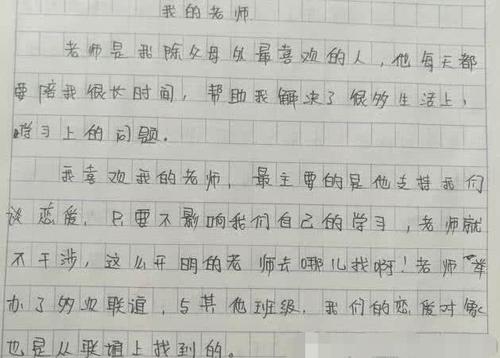 我的老师
老师是我除父母外最喜欢的人,他每天都
要陪我很长时间,帮助我解决了很多生活上,
学习上的问题。
我喜欢我的老师,最主要的是他支持我们
谈恋爱,只要不影响我们自己的学习,老师就
不干涉,这么开明的老师去哪儿找啊!老师举
办了多次联谊,与其他班级,我们的恋爱对象
也是从联谊上找到的。